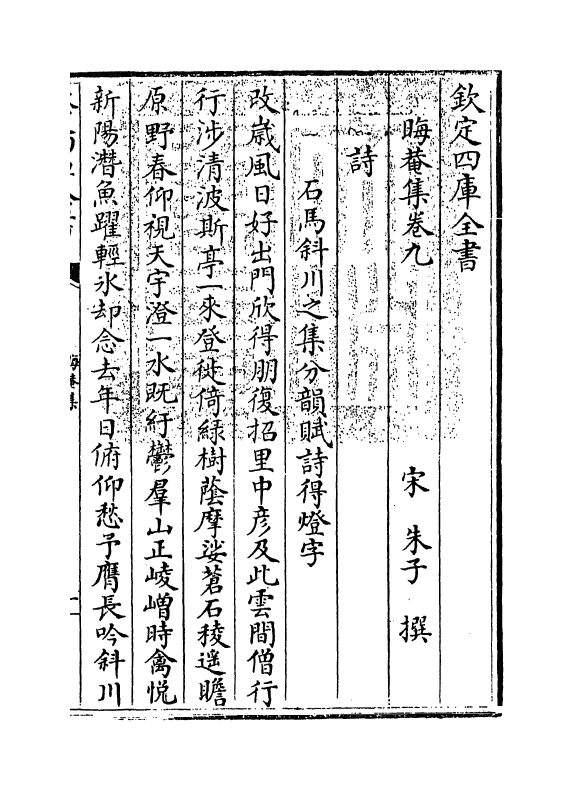 欽定四庫全書
晦菴集卷九
宋 朱子 撰
詩
石馬斜川之集分韻賦詩得燈字
改嵗風日好出門欣得朋復招里中彦及此雲間僧行
行涉清波斯亭一來登徙倚緑樹蔭摩挲蒼石稜遥瞻
原野春仰視天宇澄一水旣紆鬱羣山正崚嶒時禽悦
新陽濳魚躍輕氷却念去年日俯仰愁予膺長吟斜川
晦菴集
一